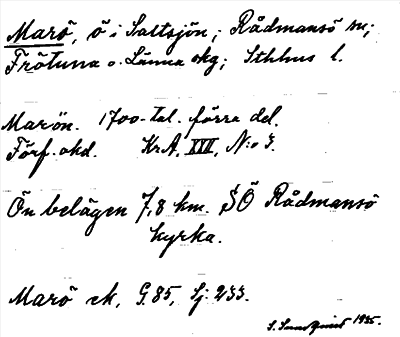 Marö, ö i Saltsjön; Rådmansö sn;
Frötuna o. Länna skg; Sthlms l.
Marön. 1700-tal. förra del.
Förf. okd. KrA, XVII, N:o 3.
Ön belägen 7,8 km. SÖ Rådmansö
kyrka.
Marö ek, G. 85, Sj: 233.
S. Sundquist 1935.